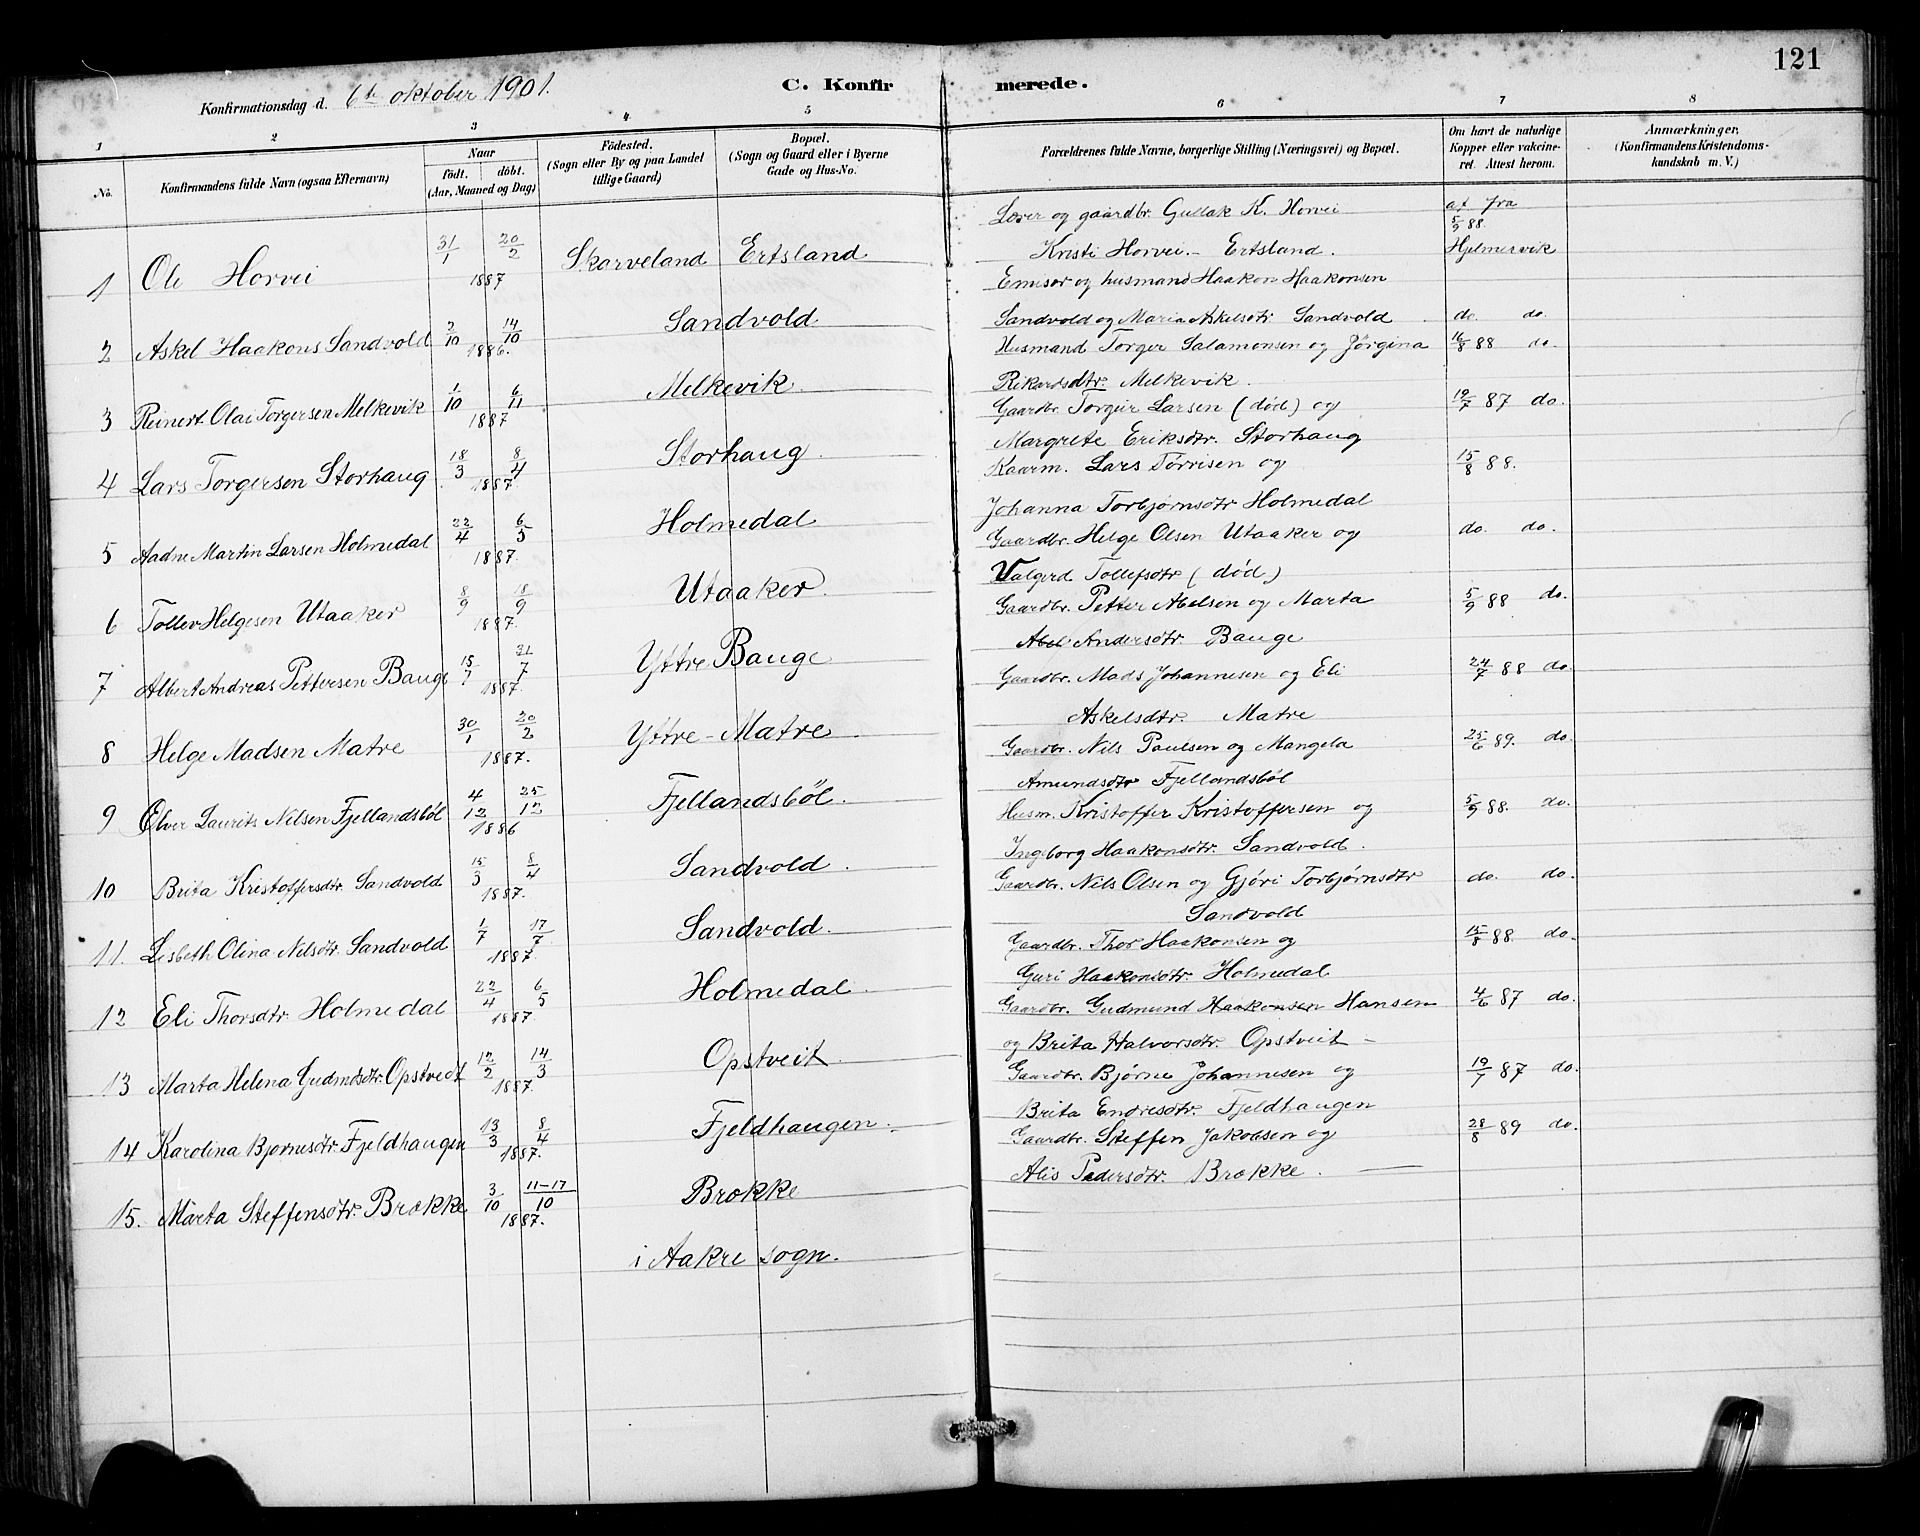 121
Konfirmationsdag d. 6te oktober 1901.
C. Konfirmerede.
1 2 3 4 5 6 7 8
No.
Konfirmandens fulde Navn (ogsaa Efternavn)
Naar
födt. döbt.
(Aar, Maaned og Dag)
Födested.
(Sogn eller By og paa Landet
tillige Gaard)
Bopæl.
(Sogn og Guard eller i Byerne
Gade og Hus-No.
Forældrenes fulde Navne, borgerlige Stilling (Næringsvei) og Bopæl.
Om havt de naturlige
Kopper eller vakcine-
ret. Attest herom.
Anmærkninger.
(Konfirmandens Kristendoms-
kundskab m. V.)
1 Ole Horvei 31/1 20/2 1887 Skarveland Ertsland
Lærer og gaardbr. Gullak K. Horvei
Kristi Horvei. - Ertsland.
at fra 5/9 88. Hjelmervik
2 Askel Haakons Sandvold 2/10 14/10 1886. Sandvold
Emisær og husmand Haakon Haakonsen
Sandvold og Maria Askelsdtr Sandvold do. do.
3 Reinert Olai Torgersen Melkevik 1/10 6/11 1887 Melkevik
Husmand Torger Salamonsen og Jörgina
Rikardsdtr. Melkevik. 16/8 88 do.
4 Lars Torgersen Storhaug 18/3 8/4 1887. Storhaug
Gaardbr. Torger Larsen (död) og
Margrete Eriksdtr. Storhaug 19/7 87 do.
5 Aadne Martin Larsen Holmedal 22/4 6/5 1887. Holmedal
Kaarm. Lars Tørrisen og
Johanna Torbjørnsdtr Holmedal 15/8 88.
6 Tollev Helgesen Utaaker 8/9 18/9 1887. Utaaker
Gaardbr. Helge Olsen Utaaker og
Valgerd Tollefsdtr (död) do. do.
7 Albert Andreas Pettersen Bauge 15/7 31/7 1887. Yttre Bauge
Gaardbr. Petter Abelsen og Marta
Abel Andersdtr. Bauge 5/9 88 do.
8 Helge Madsen Matre 30/1 20/2 1887. Yttre - Matre
Gaardbr. Mads Johannesen og Eli
Askelsdtr. Matre 24/7 88 do.
9 Elver Laurits Nilsen Fjellandsböl 4/12 25/12 1886 Fjellandsböl.
Gaardbr. Nils Paulsen og Mangela
Amundsdtr Fjellandsböl 25/6 89. do.
10 Brita Kristoffersdtr. Sandvold 15/3 8/4 1887. Sandvold.
Husm. Kristoffer Kristoffersen og
Ingeborg Haakonsdtr. Sandvold. 5/9 88. do.
11. Lisbeth Olina Nilsdtr. Sandvold 1/7 17/7 1887. Sandvold.
Gaardbr. Nils Olsen og Gjöri Torbjørnsdtr
Sandvold do. do.
12 Eli Thorsdtr. Holmedal 22/4 6/5 1887. Holmedal.
Gaardbr. Thor Haakonsen og
Guri Haakonsdtr. Holmedal 15/8 88. do.
13 Marta Helena Gudmdsdtr. Opstveit 12/2 14/3 1887. Opstveit.
Gaardbr. Gudmund Haakonsen Hansen
og Brita Halvorsdtr. Opstveit - 4/6 87 do.
14 Karolina Bjørnesdtr. Fjeldhaugen 13/3 8/4 1887. Fjeldhaugen.
Gaardbr. Bjørne Johannesen og
Brita Endresdtr. Fjeldhaugen 19/7 87 do.
15. Marta Steffensdtr. Brække 3/10 11-17/10 1887. Brække
i Aakre sogn.
Gaardbr. Steffen Jakobsen og
Alis Pedersdtr. Brække. 28/8 89 do.